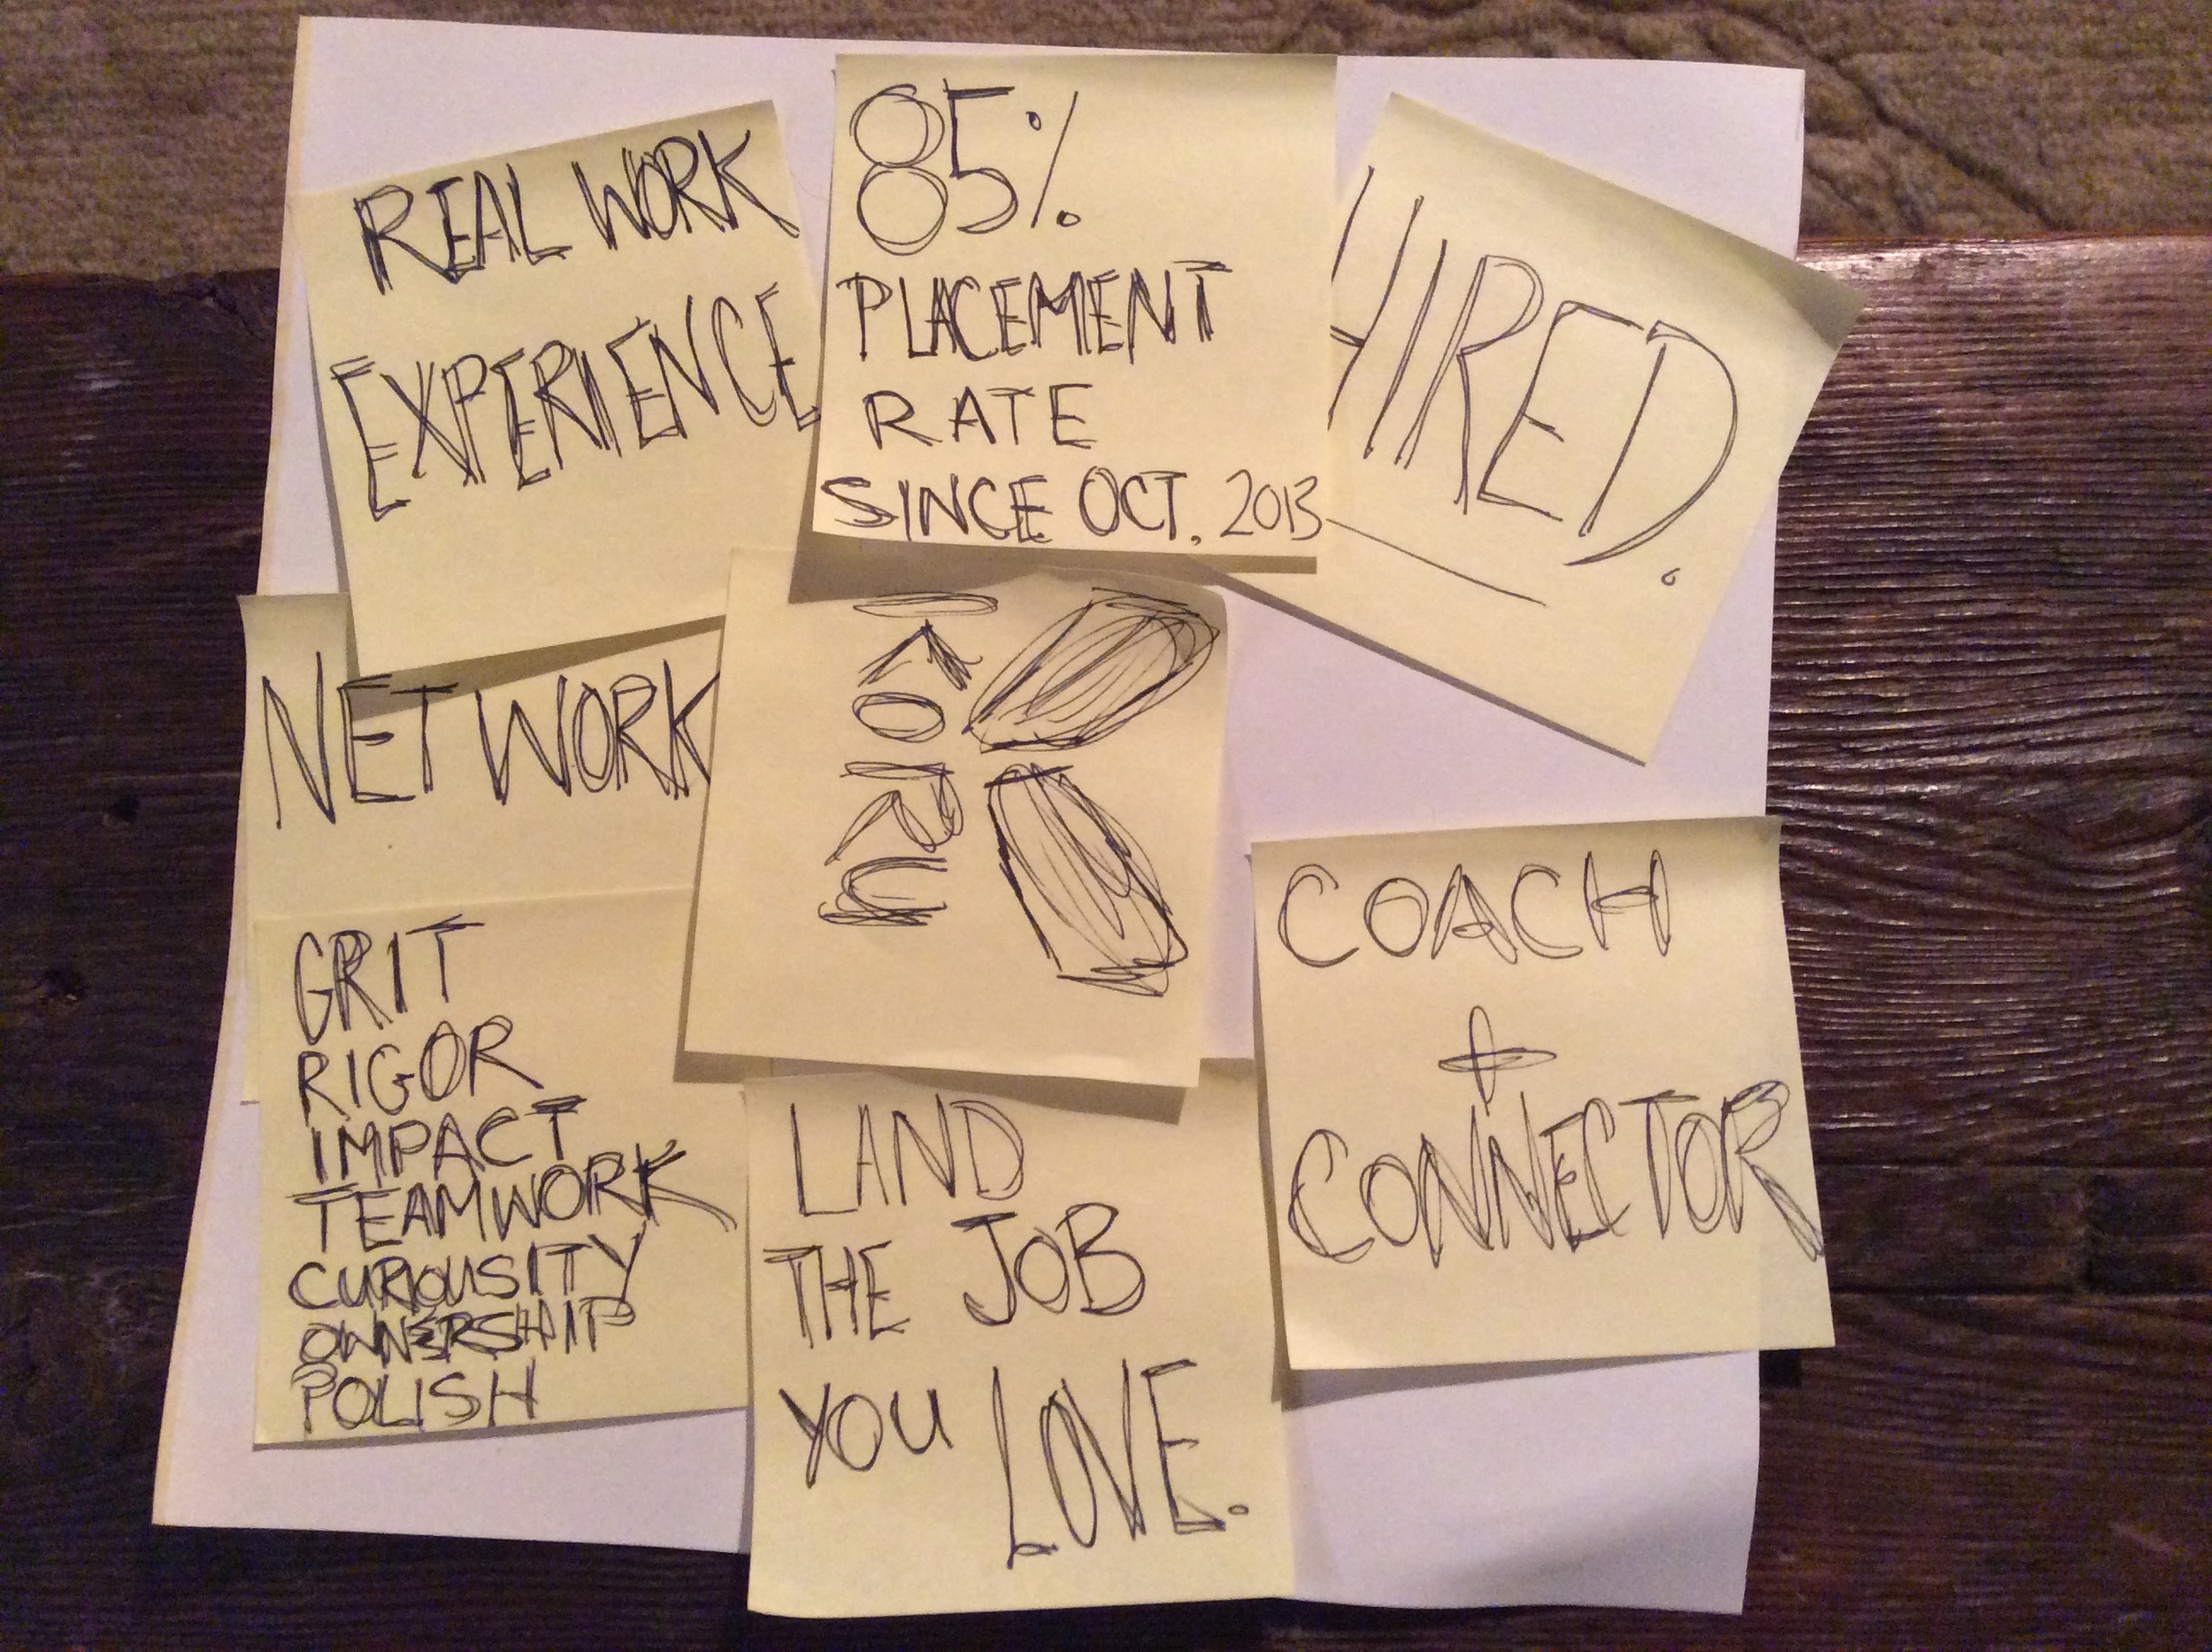 REAL WORK
EXPERIENCE
85%
PLACEMENT
RATE
SINCE OCT. 2013
HIRED.
NETWORK
KORU
GRIT
RIGOR
IMPACT
TEAMWORK
CURIOUSITY
OWNERSHIP
POLISH
LAND
THE JOB
YOU LOVE.
COACH
+
CONNECTOR